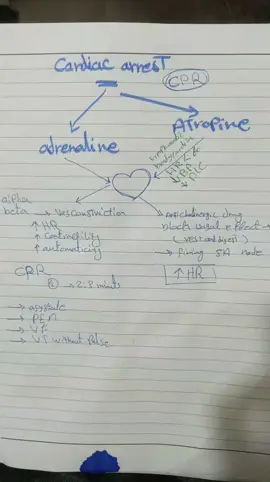 Cardiac arresT
CPR
adrenaline
ATropine
HR <
↓ BP
alpha
beta → vasconstriction
↑ HR
↑ contractility
↑ automaticity
anticholinergic drug
block vagal effect →
(rest and digest)
→ firing SA node
↑ HR
CPR
① → 2:3 minuts
→ asystole
→ PEA
→ VF
→ VT without pulse